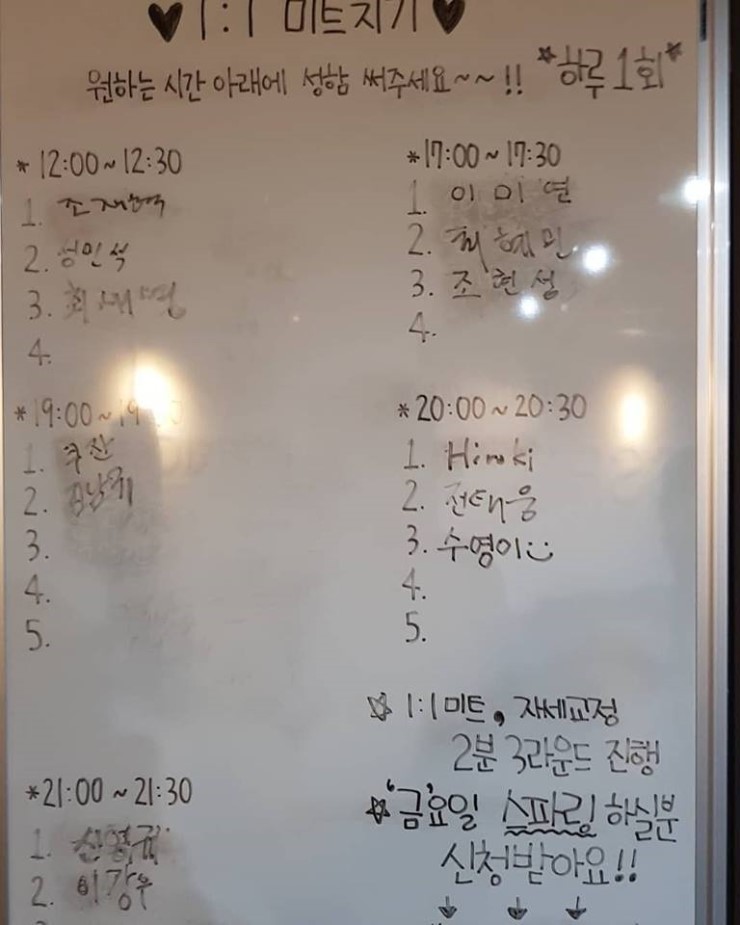 ♥ 1:1 미트지기 ♥
원하는 시간 아래에 성함 써주세요~~!! *하루 1회*
*12:00~12:30
1.
2. 성민석
3.
4.
*17:00~17:30
1. 이미연
2. 최혜민
3. 조현성
4.
*19:00~19
1.
2.
3.
4.
5.
*20:00~20:30
1. Hiroki
2. 전태웅
3. 수영이
4.
5.
☆ 1:1미트, 자세교정
2분 3라운드 진행
☆ '금'요일 스파링 하실분
신청받아요!!
↓ ↓ ↓
*21:00~21:30
1.
2. 이강우